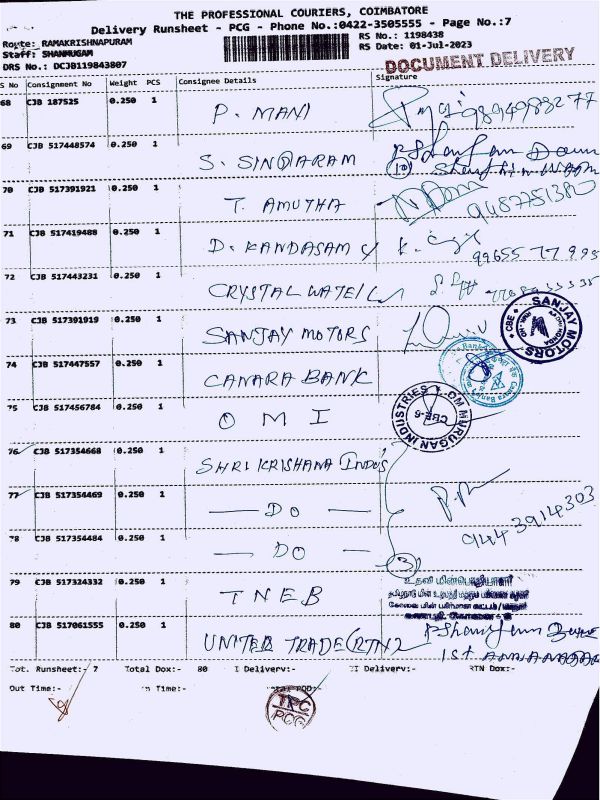 THE PROFESSIONAL COURIERS, COIMBATORE
Delivery Runsheet - PCG - Phone No.:0422-3505555 - Page No.:7
Route: RAMAKRISHNAPURAM
RS No.: 1198438
Staff: SHANMUGAM
RS Date: 01-Jul-2023
DRS No.: DCJB119843807
DOCUMENT DELIVERY
S No Consignment No Weight PCS Consignee Details Signature
68 CJB 187525 0.250 1 P. MANI 9894988277
69 CJB 517448574 0.250 1 S. SINGARAM
70 CJB 517391921 0.250 1 T. AMUTHA 9487751380
71 CJB 517419488 0.250 1 D. KANDASAMY 99655 77995
72 CJB 517443231 0.250 1 CRYSTAL
73 CJB 517391919 0.250 1 SANJAY MOTORS
SANJAY MOTORS CBE
74 CJB 517447557 0.250 1 CANARA BANK
75 CJB 517456784 0.250 1 O M I
OM MURUGAN INDUSTRIES CBE-6
76 CJB 517354668 0.250 1 SHRI KRISHANA INDUS
77 CJB 517354469 0.250 1 — DO — 9443914303
78 CJB 517354484 0.250 1 — DO — 3
79 CJB 517324332 0.250 1 TNEB
உதவி மின்பொறியாளர்
80 CJB 517061555 0.250 1 UNITED TRADE (RTN)
Tot. Runsheet:- 7 Total Dox:- 80 I Delivery:- II Delivery:- RTN Dox:-
Out Time:- In Time:- Total POD:-
TPC
PCG